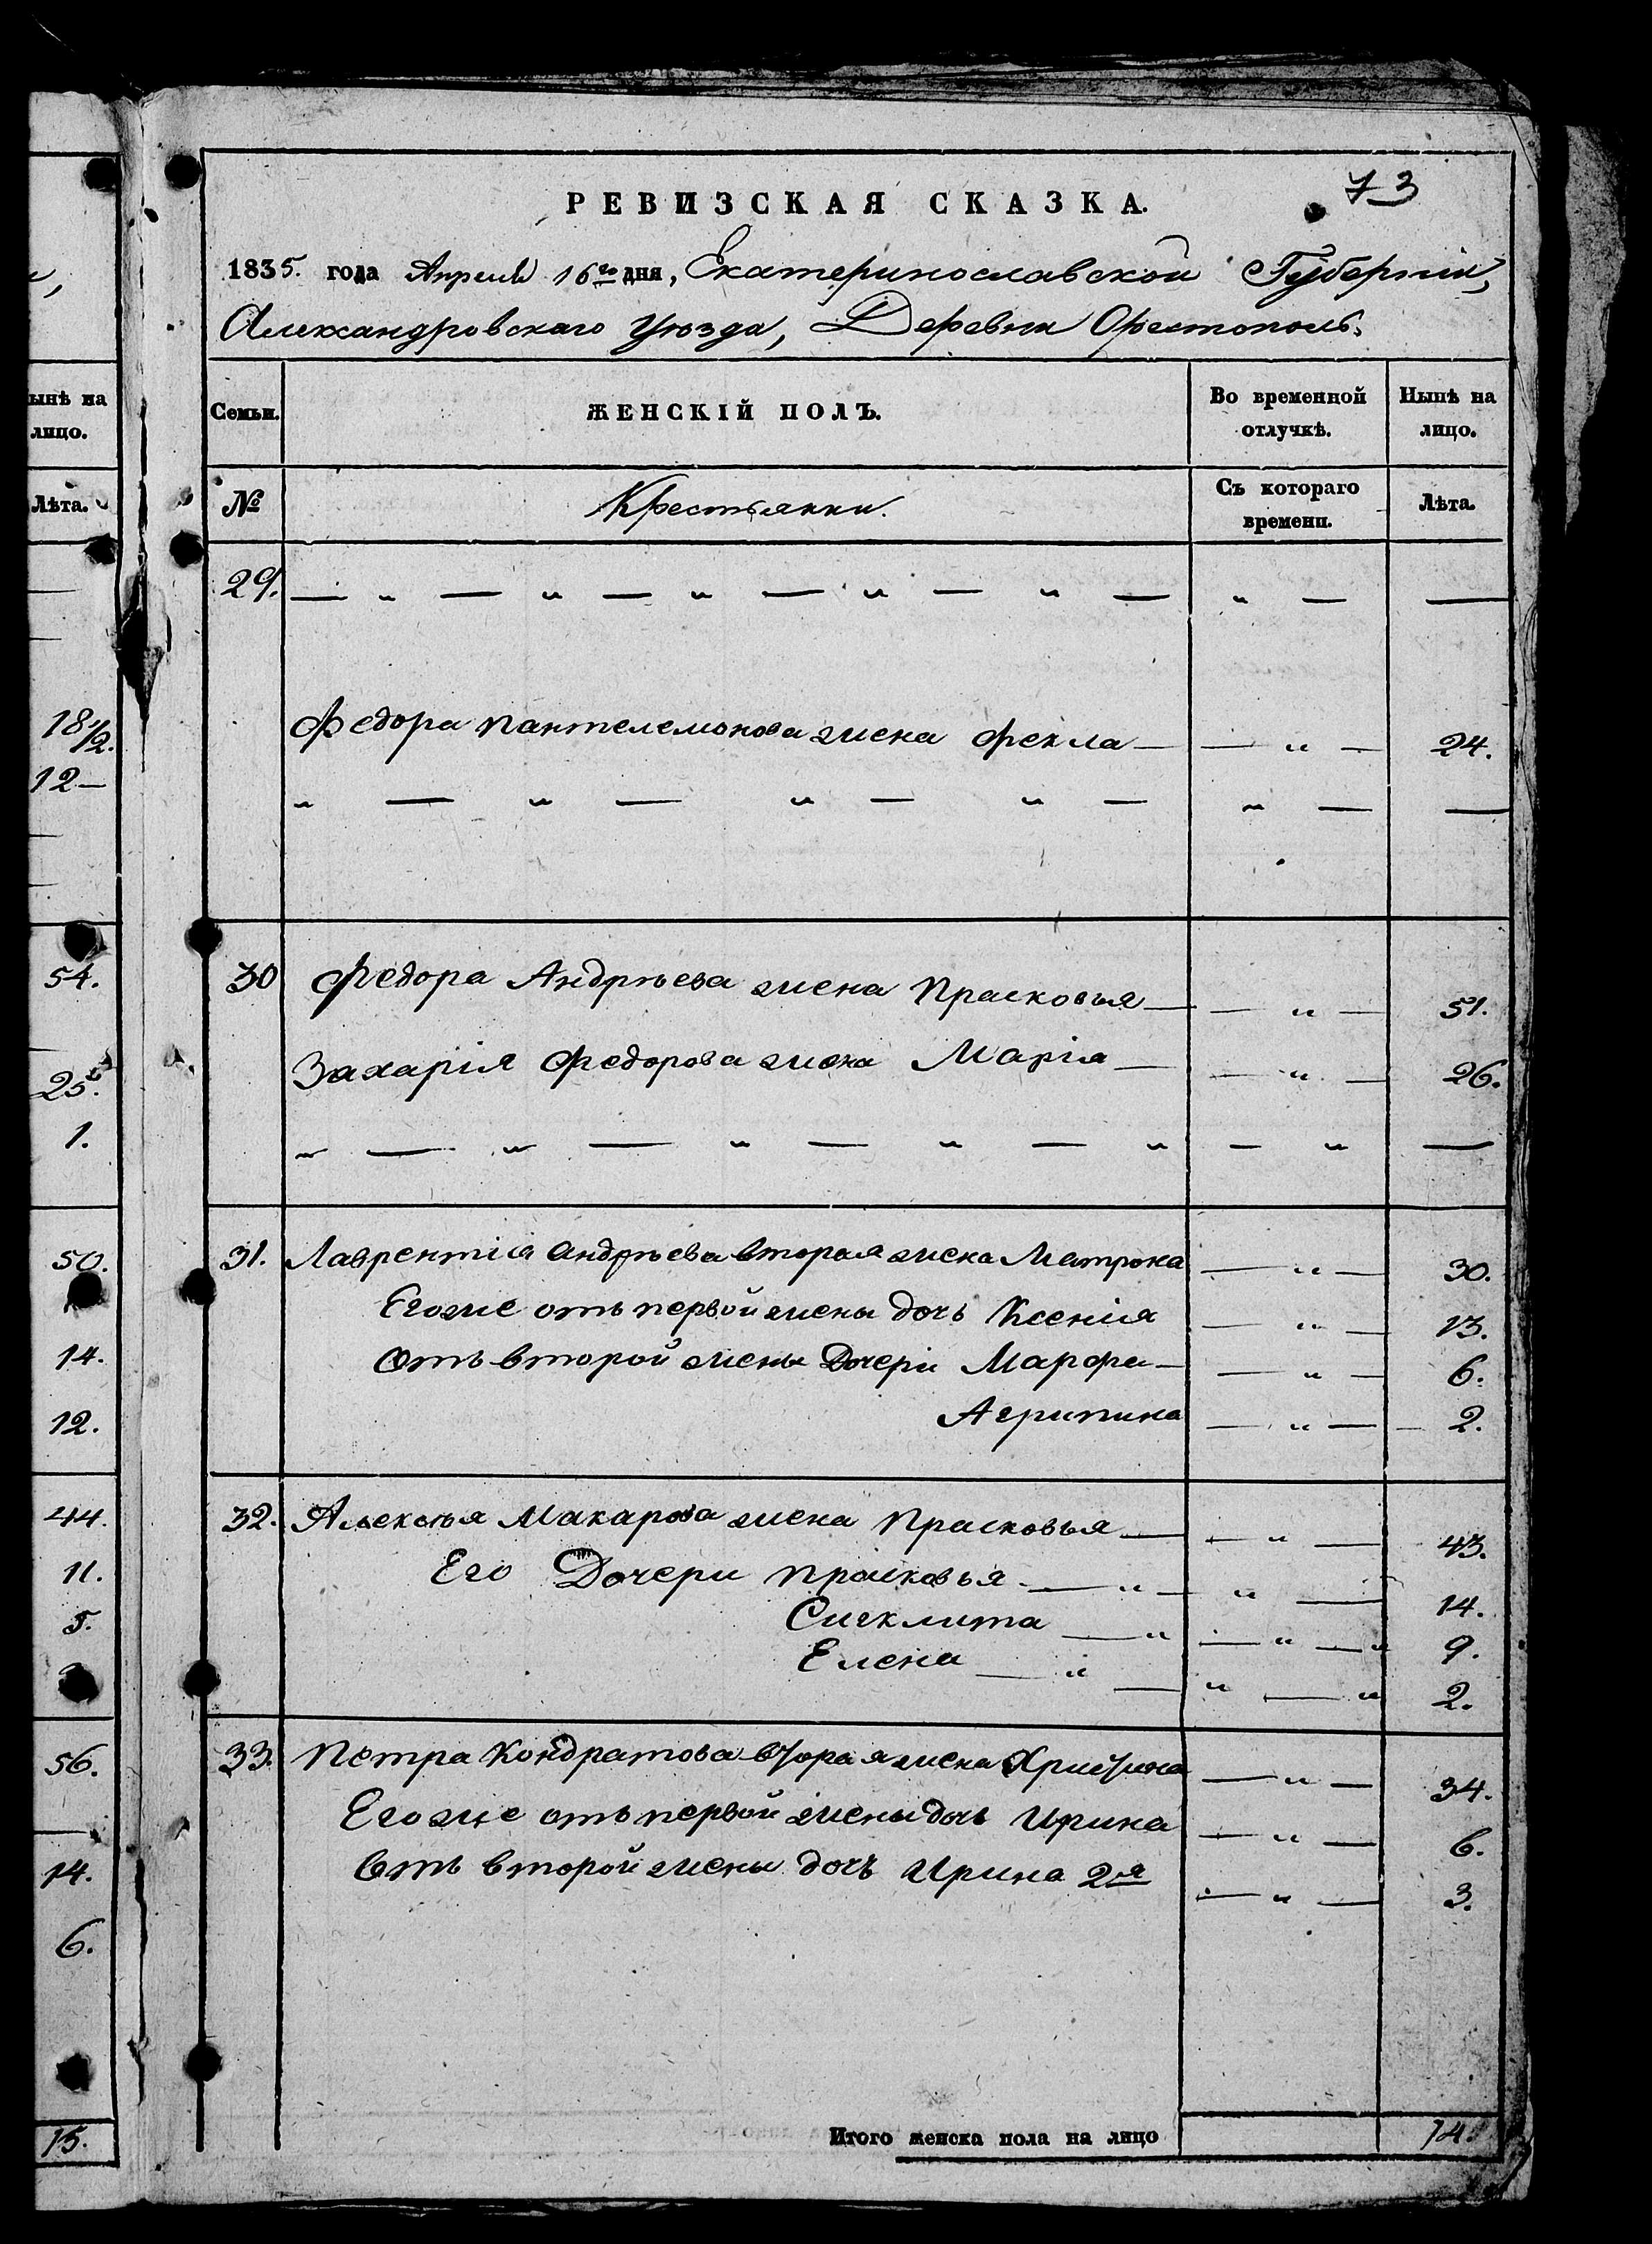 73
РЕВИЗСКАЯ СКАЗКА.
1835. года Апреля 16го дня, Екатеринославской Губерніи,
Александровскаго Уѣзда, Деревни Орестополь.
ынѣ на лицо.
Семьи. ЖЕНСКІЙ ПОЛЪ. Во временной отлучкѣ. Нынѣ на лицо.
Лѣта.
№ Крестьянки. Съ котораго времени. Лѣта.
29. — „ — „ — „ — „ — „ — „ — —
18 1/2.
Федора Пантелемонова жена Фекла — — „ — 24.
12 —
„ — „ — „ — „ — „ — —
54.
30 Федора Андрѣева жена Прасковья — — „ — 51.
25.
Захарія Федорова жена Марія — — „ — 26.
1.
„ — „ — „ — „ — „ — „ —
50.
31. Лаврентія Андрѣева вторая жена Матрона — „ — 30.
Егоже отъ первой жены дочь Ксенія — „ — 13.
14.
Отъ второй жены Дочери Марфа — — „ — 6.
12.
Агрипина — „ — 2.
44.
32. Алексѣя Макарова жена Прасковья — — „ — 43.
11.
Его Дочери Прасковья — „ — „ — 14.
5.
Сигклита — „ — „ — „ 9.
Елена — „ — „ — „ 2.
56.
33. Петра Кондратова вторая жена Христина — „ — 34.
Егоже отъ первой жены дочь Ирина — „ — 6.
14.
Отъ второй жены дочь Ирина 2я — „ — 3.
6.
15.
Итого женска пола на лицо 14.